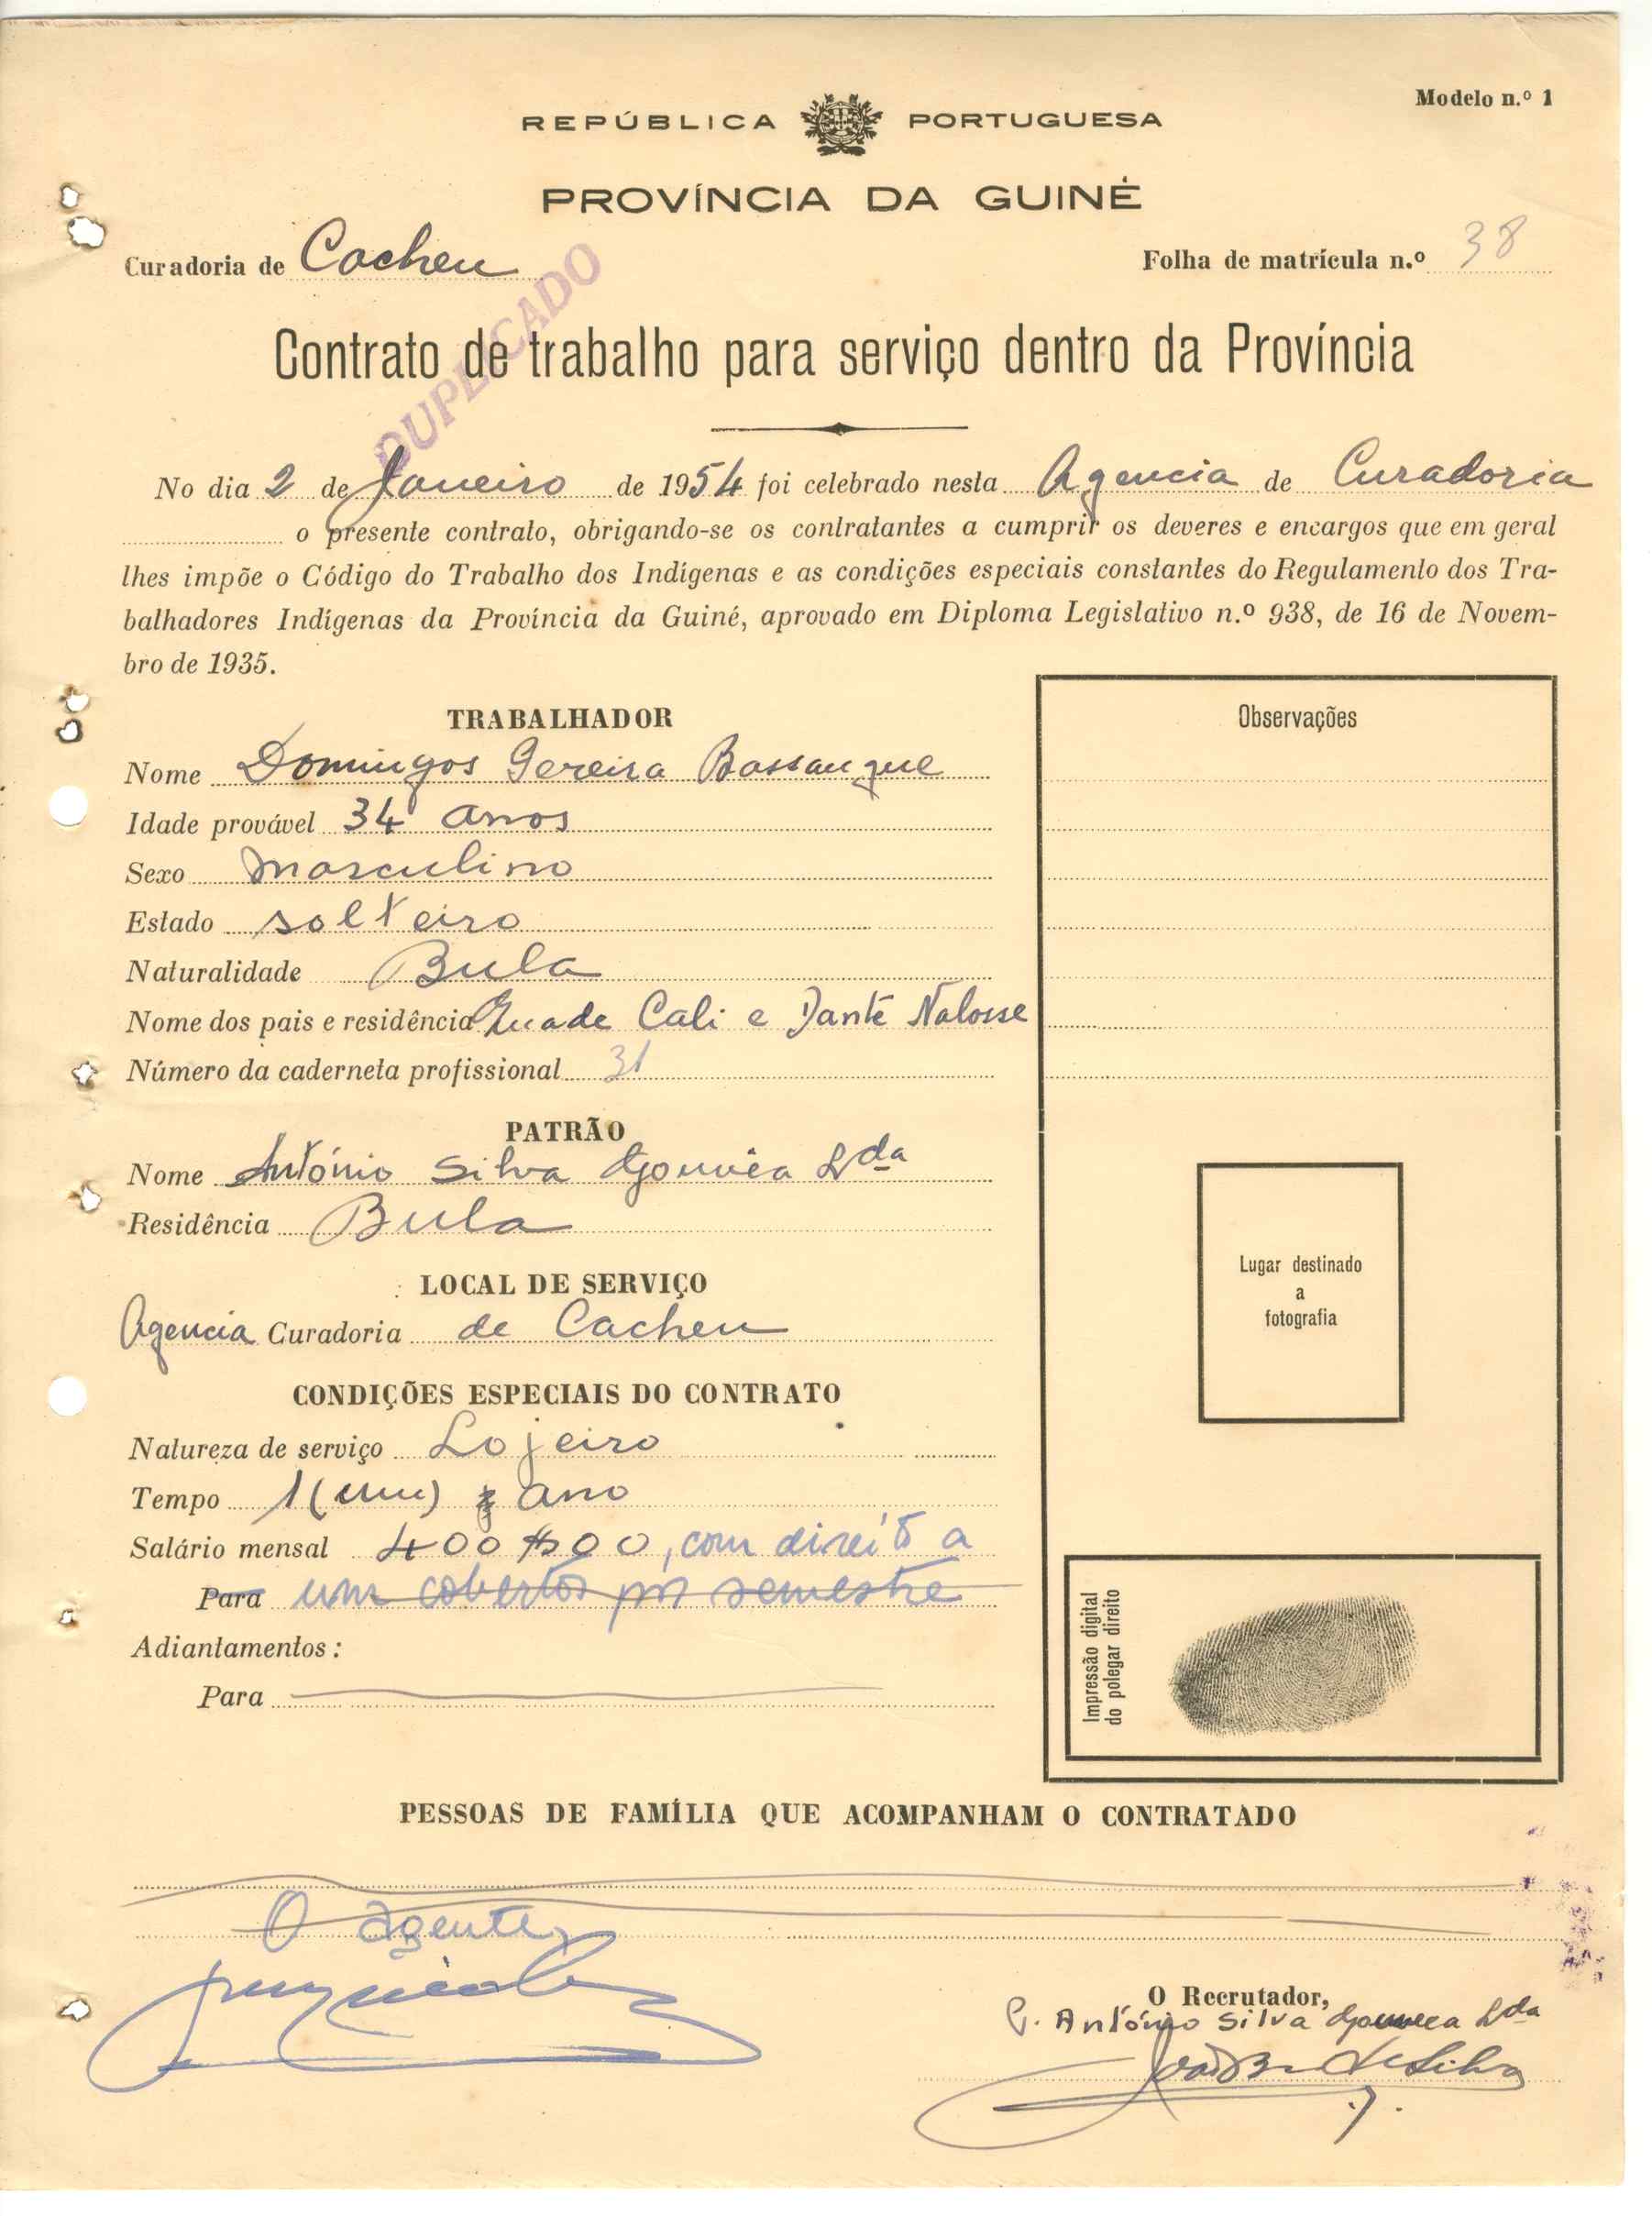 Modelo n.º 1
REPÚBLICA PORTUGUESA
PROVÍNCIA DA GUINÉ
Curadoria de Cacheu
Folha de matrícula n.º 38
DUPLICADO
Contrato de trabalho para serviço dentro da Província
No dia 2 de Janeiro de 1954 foi celebrado nesta Agencia de Curadoria
o presente contrato, obrigando-se os contratantes a cumprir os deveres e encargos que em geral
lhes impõe o Código do Trabalho dos Indígenas e as condições especiais constantes do Regulamento dos Tra-
balhadores Indígenas da Província da Guiné, aprovado em Diploma Legislativo n.º 938, de 16 de Novem-
bro de 1935.
TRABALHADOR
Nome Domingos Bassangue
Idade provável 34 anos
Sexo masculino
Estado solteiro
Naturalidade Bula
Nome dos pais e residência Cali e Nalosse
Número da caderneta profissional 31
PATRÃO
Nome António Silva Gouvêa Lda
Residência Bula
LOCAL DE SERVIÇO
Agencia Curadoria de Cacheu
CONDIÇÕES ESPECIAIS DO CONTRATO
Natureza de serviço Lojeiro
Tempo 1 (um) ano
Salário mensal 400$00, com direito a
Para um cobertor por semestre
Adiantamentos:
Para
Observações
Lugar destinado
a
fotografia
Impressão digital
do polegar direito
PESSOAS DE FAMÍLIA QUE ACOMPANHAM O CONTRATADO
O agente,
O Recrutador,
P. António Silva Gouvea Lda